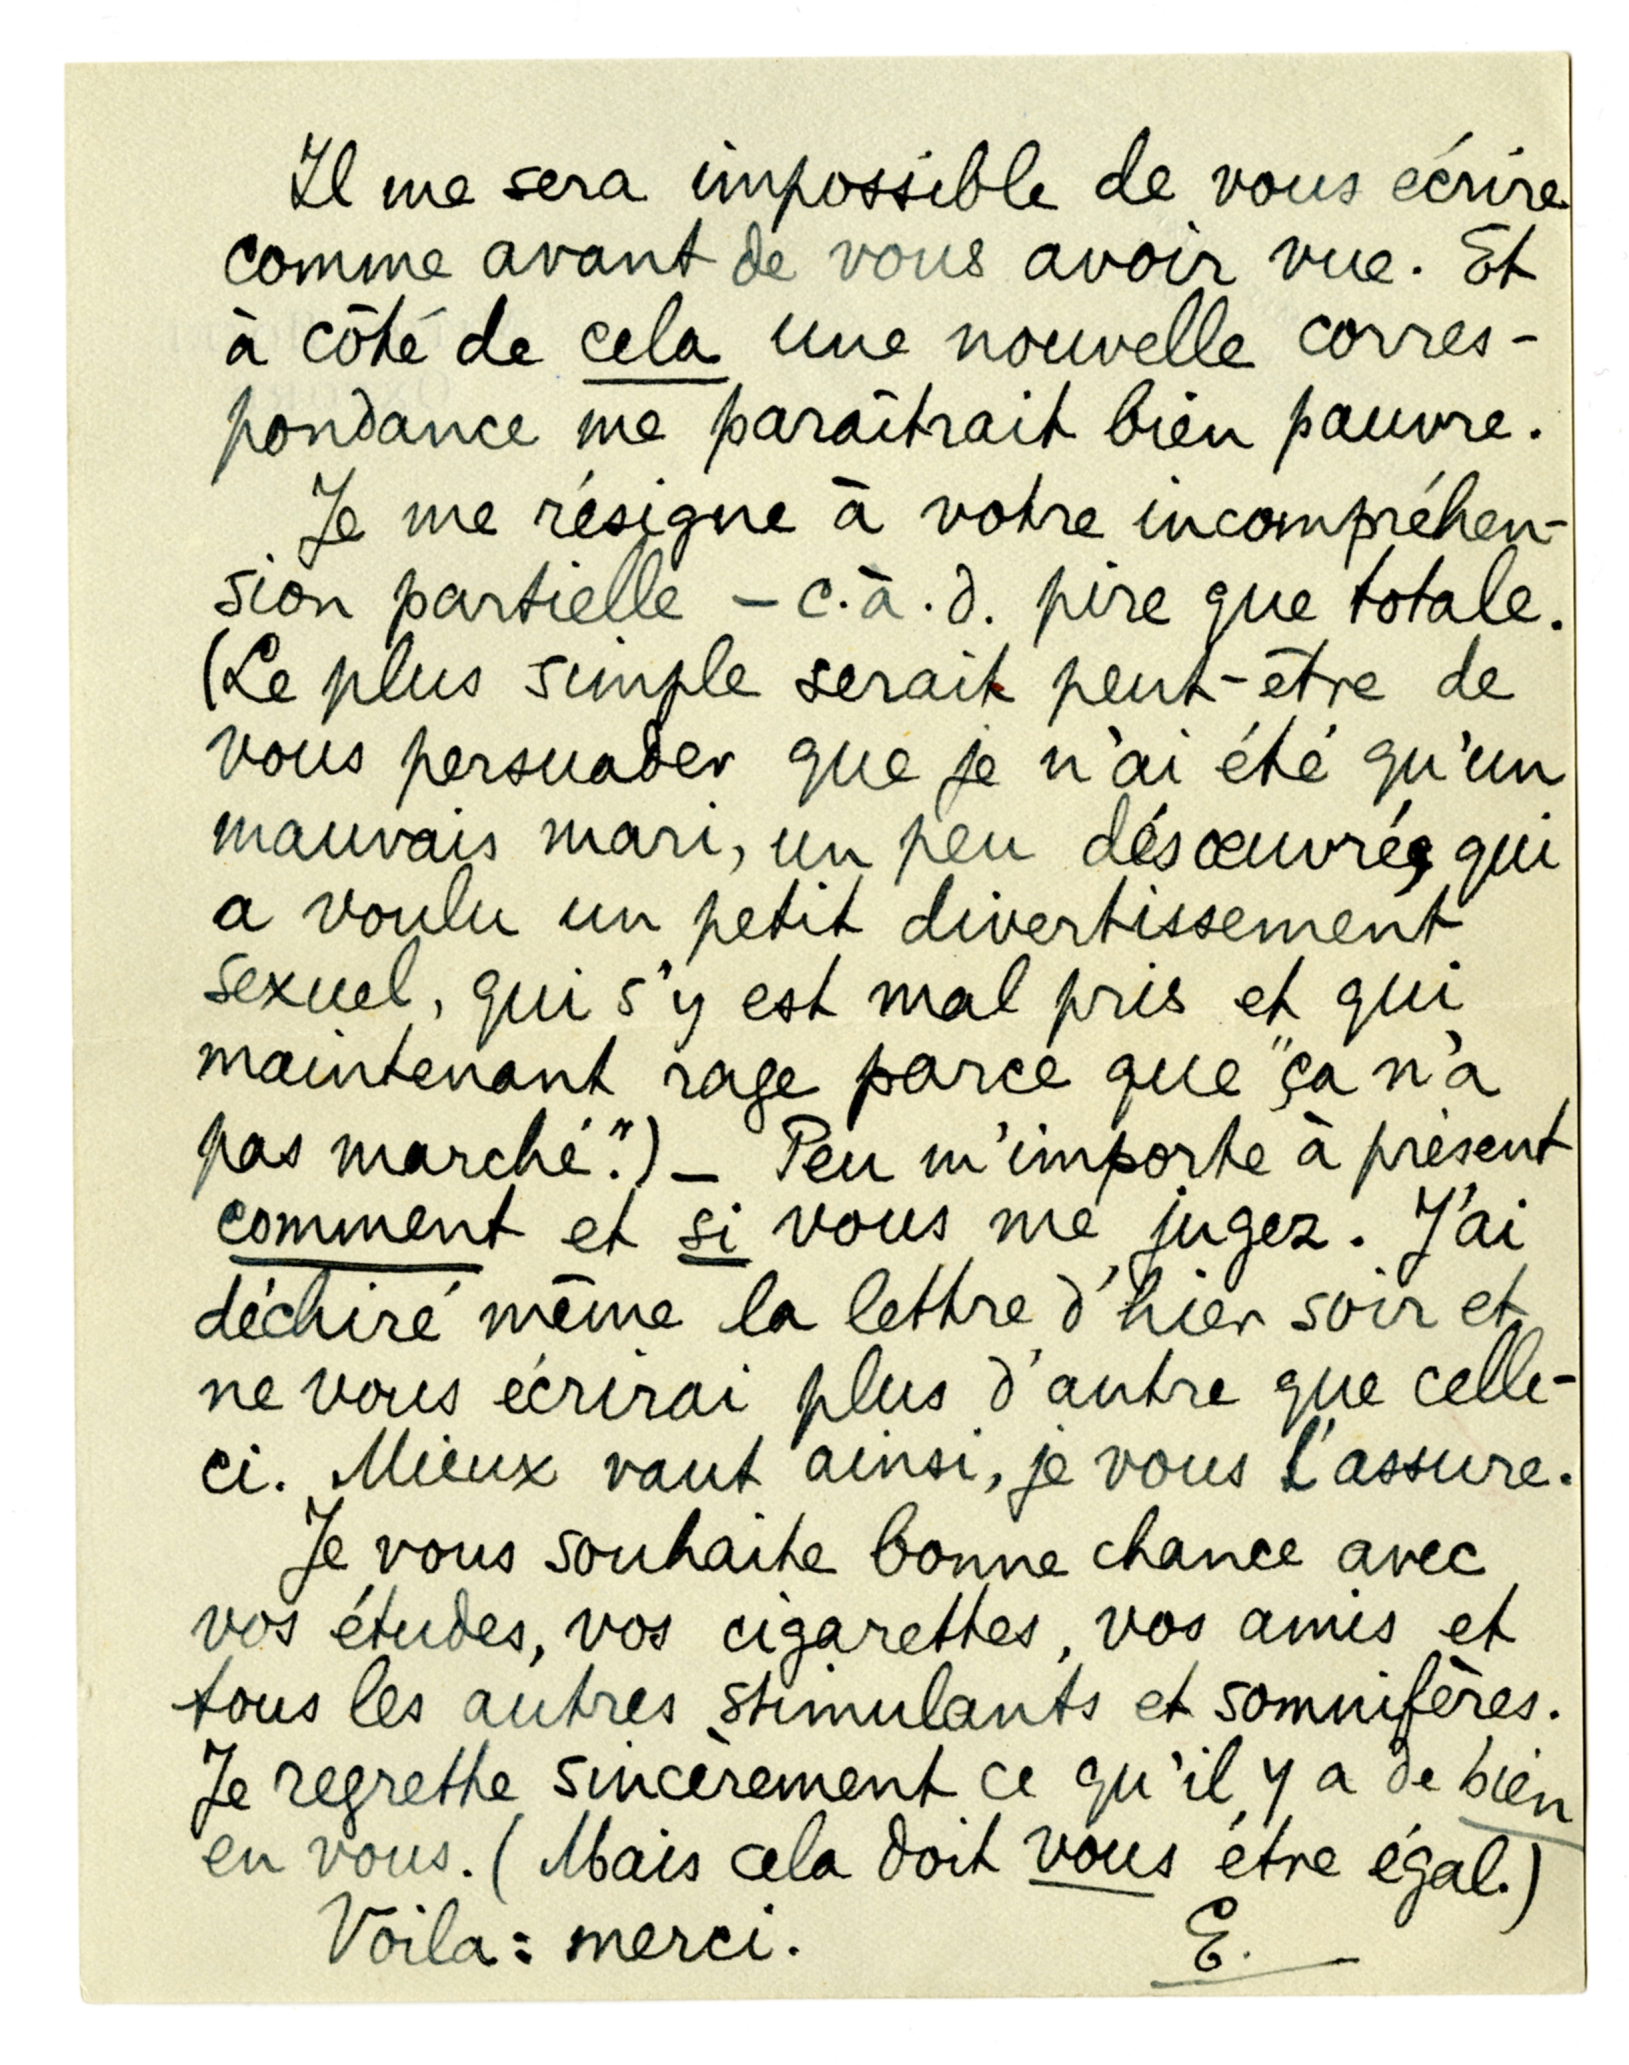 Il me sera impossible de vous écrire
comme avant de vous avoir vue. Et
à côté de cela une nouvelle corres-
pondance me paraîtrait bien pauvre.
Je me résigne à votre incompréhen-
sion partielle – c.à.d. pire que totale.
(Le plus simple serait peut-être de
vous persuader que je n'ai été qu'un
mauvais mari, un peu désœuvré, qui
a voulu un petit divertissement
sexuel, qui s'y est mal pris et qui
maintenant rage parce que "ça n'a
pas marché".) – Peu m'importe à présent
comment et si vous me jugez. J'ai
déchiré même la lettre d'hier soir et
ne vous écrirai plus d'autre que celle-
ci. Mieux vaut ainsi, je vous l'assure.
Je vous souhaite bonne chance avec
vos études, vos cigarettes, vos amis et
tous les autres stimulants et somnifères.
Je regrette sincèrement ce qu'il y a de bien
en vous. (Mais cela doit vous être égal.)
Voila : merci. E.